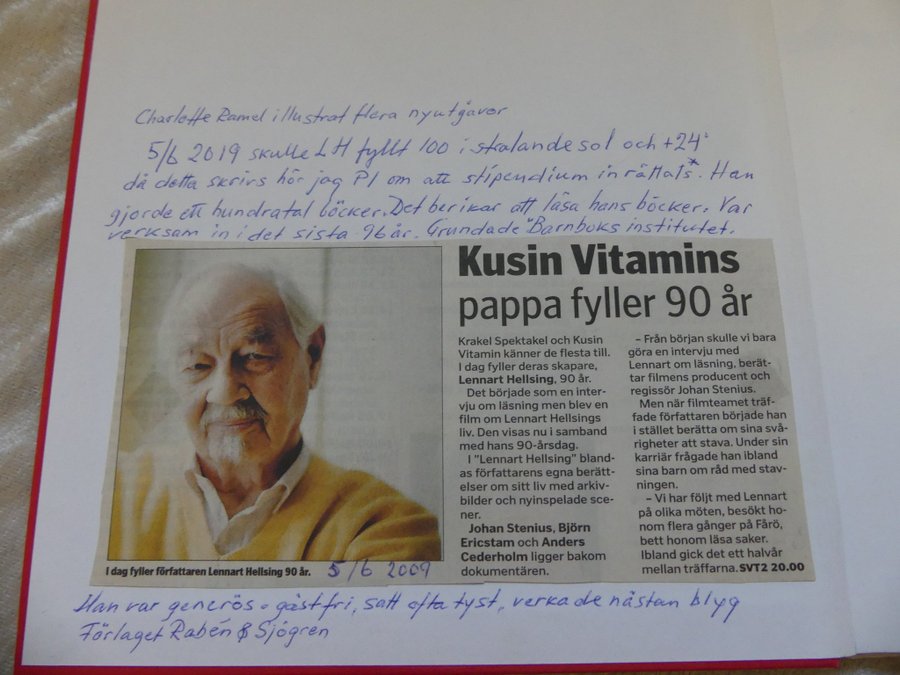 Charlotte Ramel illustrat flera nyutgåvor
5/6 2019 skulle LH fyllt 100 i strålande sol och +24°
då detta skrivs hör jag P1 om att stipendium inrättats*. Han
gjorde ett hundratal böcker. Det berikar att läsa hans böcker. Var
verksam in i det sista 96 år. Grundade "Barnboksinstitutet.
Kusin Vitamins
pappa fyller 90 år
Krakel Spektakel och Kusin
Vitamin känner de flesta till.
I dag fyller deras skapare,
Lennart Hellsing, 90 år.
Det började som en inter-
vju om läsning men blev en
film om Lennart Hellsings
liv. Den visas nu i samband
med hans 90-årsdag.
I "Lennart Hellsing" bland-
as författarens egna berätt-
elser om sitt liv med arkiv-
bilder och nyinspelade sce-
ner.
Johan Stenius, Björn
Ericstam och Anders
Cederholm ligger bakom
dokumentären.
– Från början skulle vi bara
göra en intervju med
Lennart om läsning, berät-
tar filmens producent och
regissör Johan Stenius.
Men när filmteamet träf-
fade författaren började han
i stället berätta om sina svå-
righeter att stava. Under sin
karriär frågade han ibland
sina barn om råd med stav-
ningen.
– Vi har följt med Lennart
på olika möten, besökt ho-
nom flera gånger på Fårö,
bett honom läsa saker.
Ibland gick det ett halvår
mellan träffarna. SVT2 20.00
I dag fyller författaren Lennart Hellsing 90 år.
5/6 2009
Han var generös o gästfri, satt ofta tyst, verkade nästan blyg
Förlaget Rabén & Sjögren